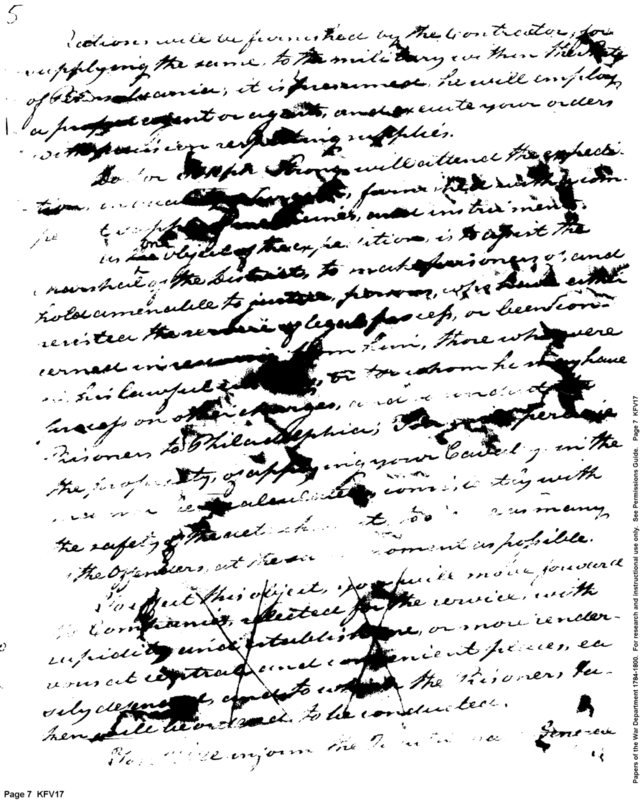 5
Rations will be furnished by the Contractor, for
supplying the same to the military within the State
of Pennsylvania; it is presumed, he will employ
a proper agent or agents, and execute your orders
with precision respecting supplies.
Doctor Strong will attend the expedi-
tion, furnished with a com-
pe of medicines, and instruments.
As the object of the expedition, is to assist the
marshal of the District, to make prisoners of, and
hold amenable to justice, persons, who have either
resisted the service of legal process, or been con-
cerned in from him, those who were
in his lawful or for whom he may have
process on other charges, and
Prisoners to Philadelphia; perceive
the propriety, of applying your Cavalry, in the
manner best calculated, consistently with
the safety of the detachment, to as many
of the Offenders, at the same moment as possible.
To effect this object, you will move forward
Companies, selected for the service, with
rapidity and establish one, or more render-
vous at central and convenient places, ea-
sily defended and to which the Prisoners ta-
ken will be ordered to be conducted.
You will inform the General
Page 7 KFV17
Papers of the War Department 1784-1800. For research and instructional use only. See Permissions Guide. Page 7 KFV17